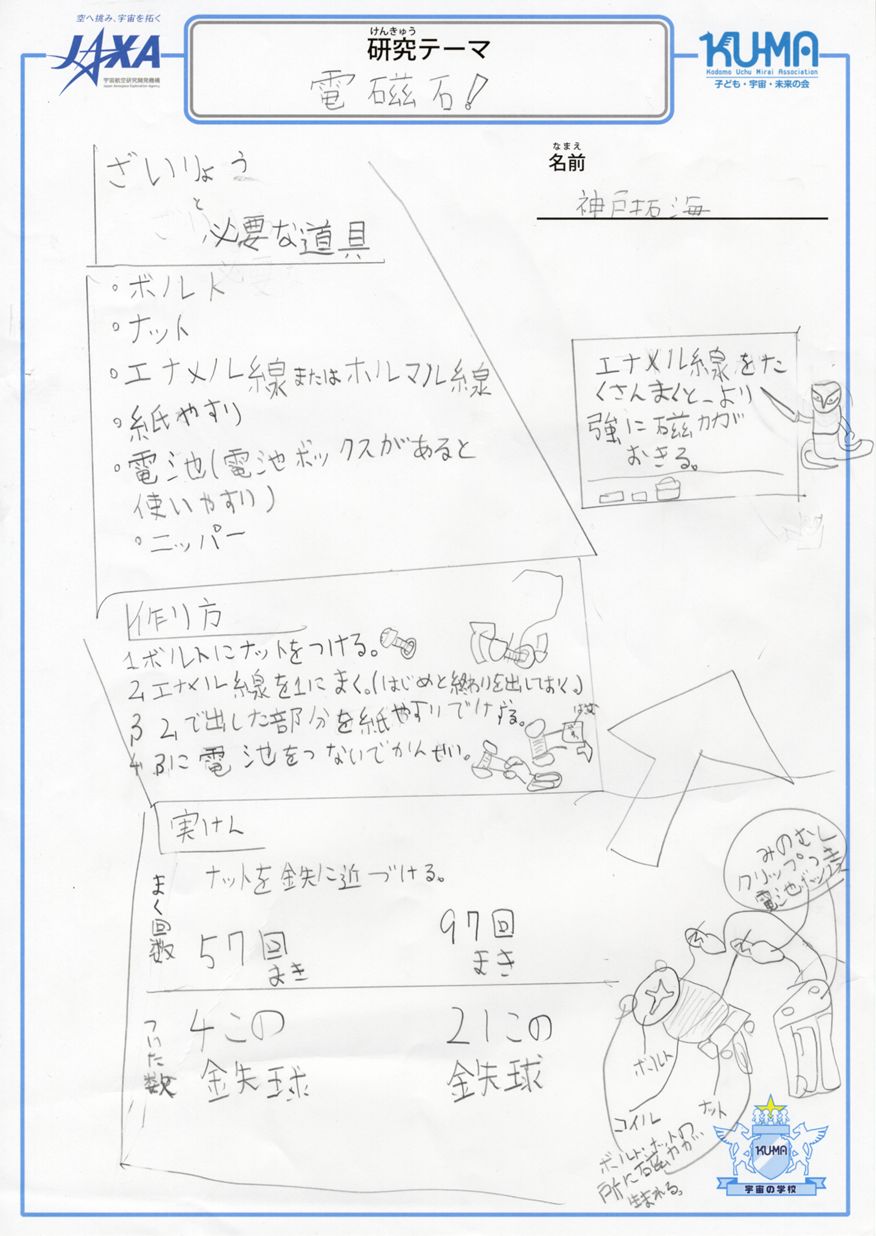 空へ挑み、宇宙を拓く
JAXA
宇宙航空研究開発機構
Japan Aerospace Exploration Agency
けんきゅう
研究テーマ
電磁石!
KU-MA
Kodomo Uchu Mirai Association
子ども・宇宙・未来の会
なまえ
名前
神戸拓海
ざいりょう
と
必要な道具
・ボルト
・ナット
・エナメル線またはホルマル線
・紙やすり
・電池(電池ボックスがあると
使いやすり)
・ニッパー
エナメル線をた
くさんまくと_より
強に磁力が
おきる。
作り方
1ボルトにナットをつける。
2エナメル線を1にまく。(はじめと終わりを出しておく。)
3 2で出した部分を紙やすりでけずる。
4 3に電池をつないでかんせい。
実けん
ナットを鉄に近づける。
まく回数
57回
まき
97回
まき
ついた数
4この
鉄球
21この
鉄球
みのむし
クリップつき
電池ボックス
ボルト
コイル
ナット
ボルト、ナットの
所に磁力が
生まれる。
KU-MA
宇宙の学校